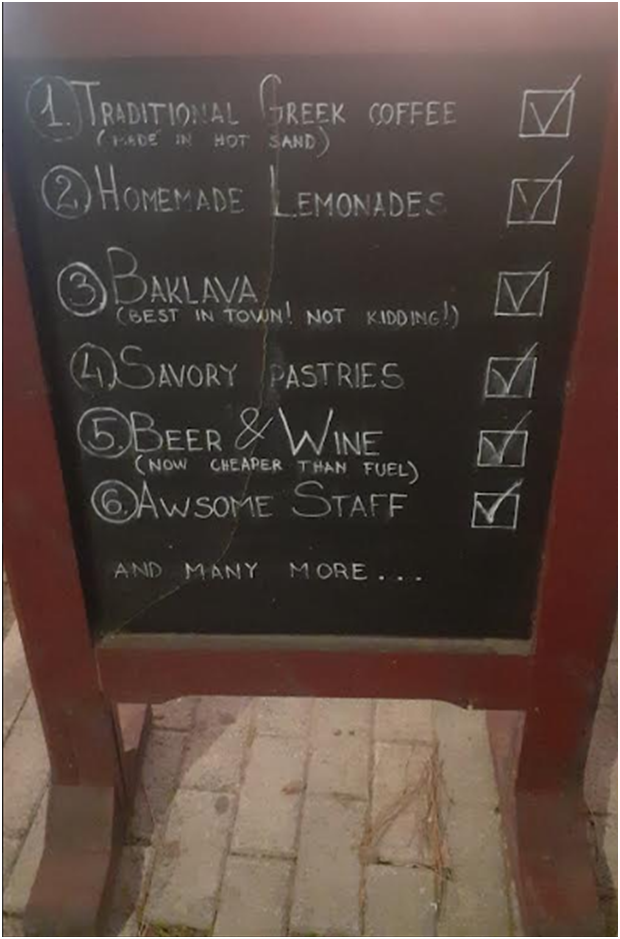 1. TRADITIONAL GREEK COFFEE
(MADE IN HOT SAND)
2 HOMEMADE LEMONADES
3 BAKLAVA
(BEST IN TOWN! NOT KIDDING!)
4. SAVORY PASTRIES
5. BEER & WINE
(NOW CHEAPER THAN FUEL)
6. AWSOME STAFF
AND MANY MORE...